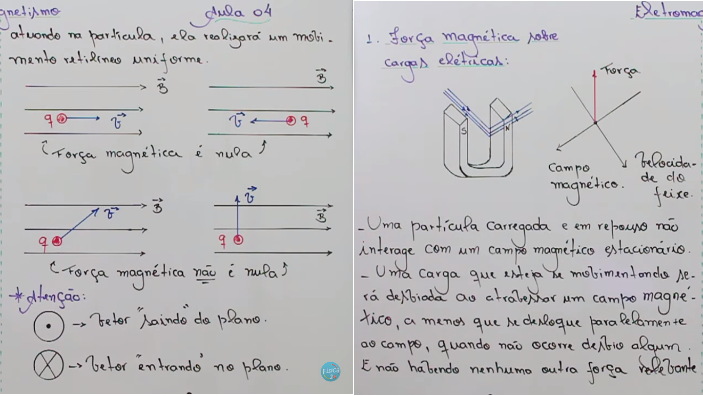 gnetismo Aula 04
atuando na partícula, ela realizará um movi-
mento retilíneo uniforme.
B
B
q v
v q
(Força magnética é nula)
v
B
v
B
q
q
(Força magnética não é nula)
* Atenção:
→ Vetor "saindo" do plano.
→ Vetor "entrando" no plano.
Eletromag
1. Força magnética sobre
cargas elétricas:
Força
S N
Campo
magnético.
Velocida-
de do
feixe.
- Uma partícula carregada e em repouso não
interage com um campo magnético estacionário.
- Uma carga que esteja se movimentando se-
rá desviada ao atravessar um campo magné-
tico, a menos que se desloque paralelamente
ao campo, quando não ocorre desvio algum.
E não havendo nenhuma outra força relevante